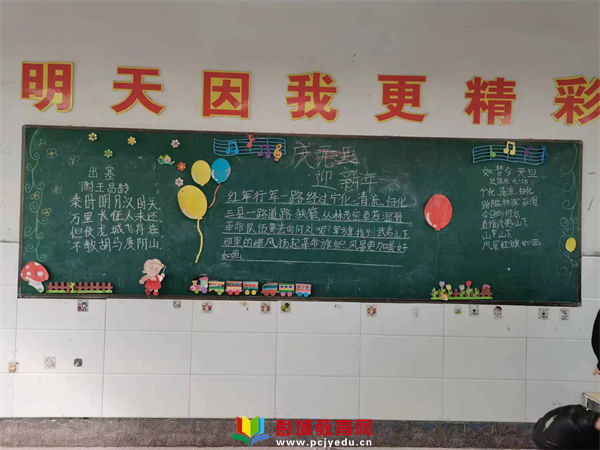 明天因我更精彩
庆元旦
迎新年
出塞
王昌龄
秦时明月汉时关
万里长征人未还
但使龙城飞将在
不教胡马度阴山
红军行军一路经过宁化、清流、归化
三县一路道路狭窄丛林茂密青苔湿滑
革命队伍要去向何处呢 军旗指到武夷山下
那里的
风扬起革命旗帜 风景更加美好
如画
如梦令 元旦
宁化、清流、归化
路隘林深苔滑
今日向何方
直指武夷山下
山下山下
风展红旗如画
创捷教育网
www.pcjyedu.cn